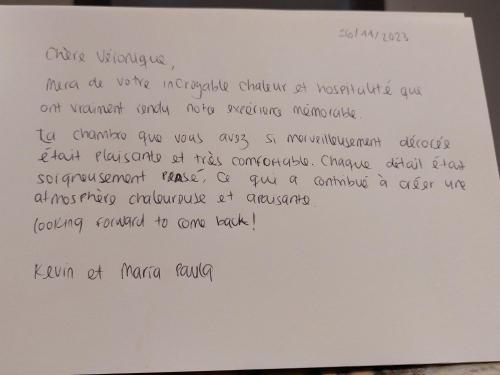 26/11/2023
Chère Véronique,
Merci de votre incroyable chaleur et hospitalité que
ont vraiment rendu notre expérience mémorable.
La chambre que vous avez si merveilleusement décorée
était plaisante et très comfortable. Chaque détail était
soigneusement pensé. Ce qui a contribué à créer une
atmosphère chaleurouse et apaisante.
looking forward to come back!
Kevin et Maria Paula